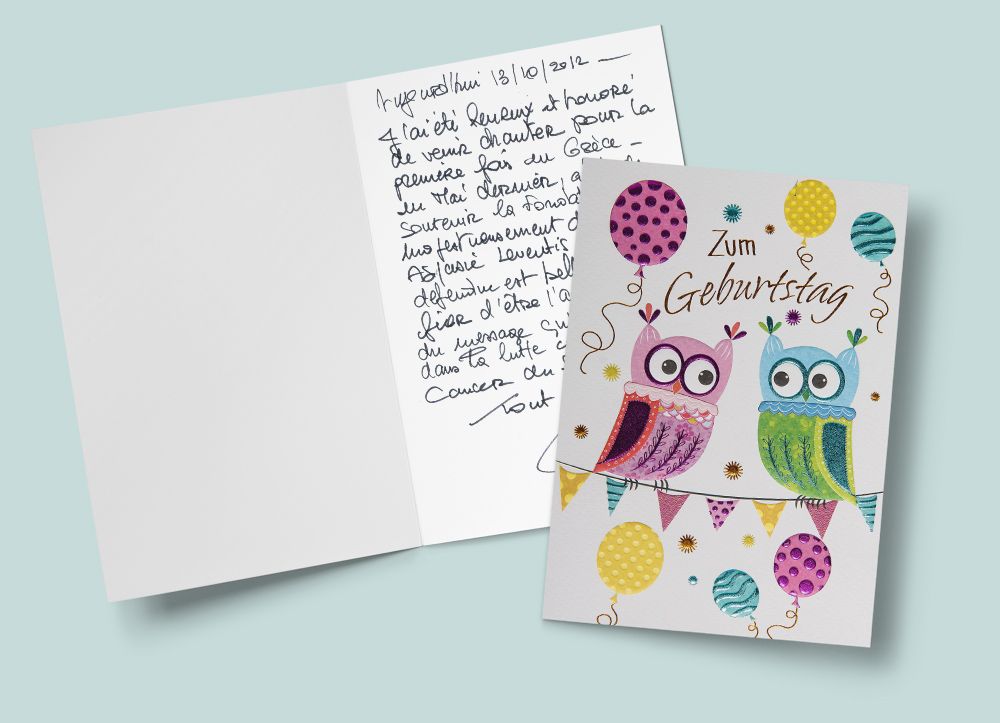 Aujourd'hui 13/10/2012 —
J'ai été heureux et honoré
de venir chanter pour la
première fois en Grèce –
en Mai dernier, a
soutenir la Fonda
Aspasie Leventis
défendue est bel
fier d'être l'a
du message qu
dans la lutte c
Cancer du
Tout
Zum
Geburtstag